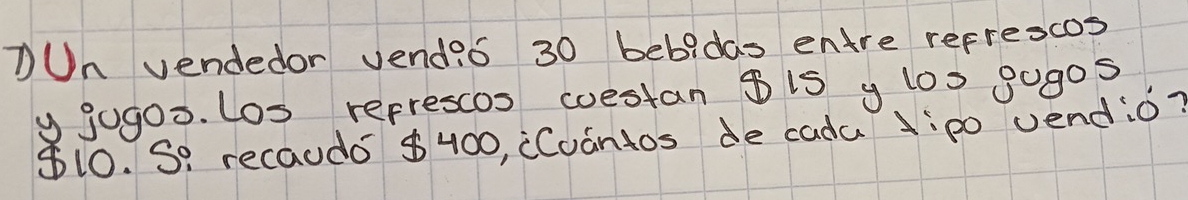 1) Un vendedor vendió 30 bebidas entre refrescos
y jugos. Los refrescos cuestan $15 y los jugos
$10. Si recaudó $400, ¿Cuántos de cada tipo vendió?